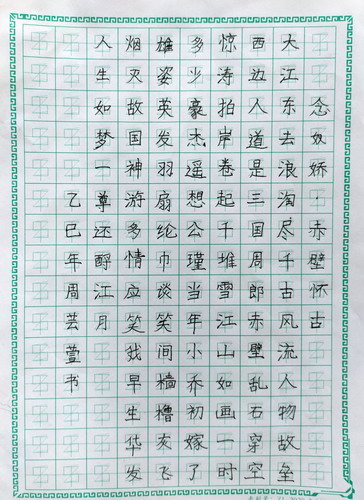 念奴娇·赤壁怀古
大江东去浪淘尽千古风流人物故垒
西边人道是三国周郎赤壁乱石穿空
惊涛拍岸卷起千堆雪江山如画一时
多少豪杰遥想公瑾当年小乔初嫁了
雄姿英发羽扇纶巾谈笑间樯橹灰飞
烟灭故国神游多情应笑我早生华发
人生如梦一尊还酹江月
乙巳年周芸萱书